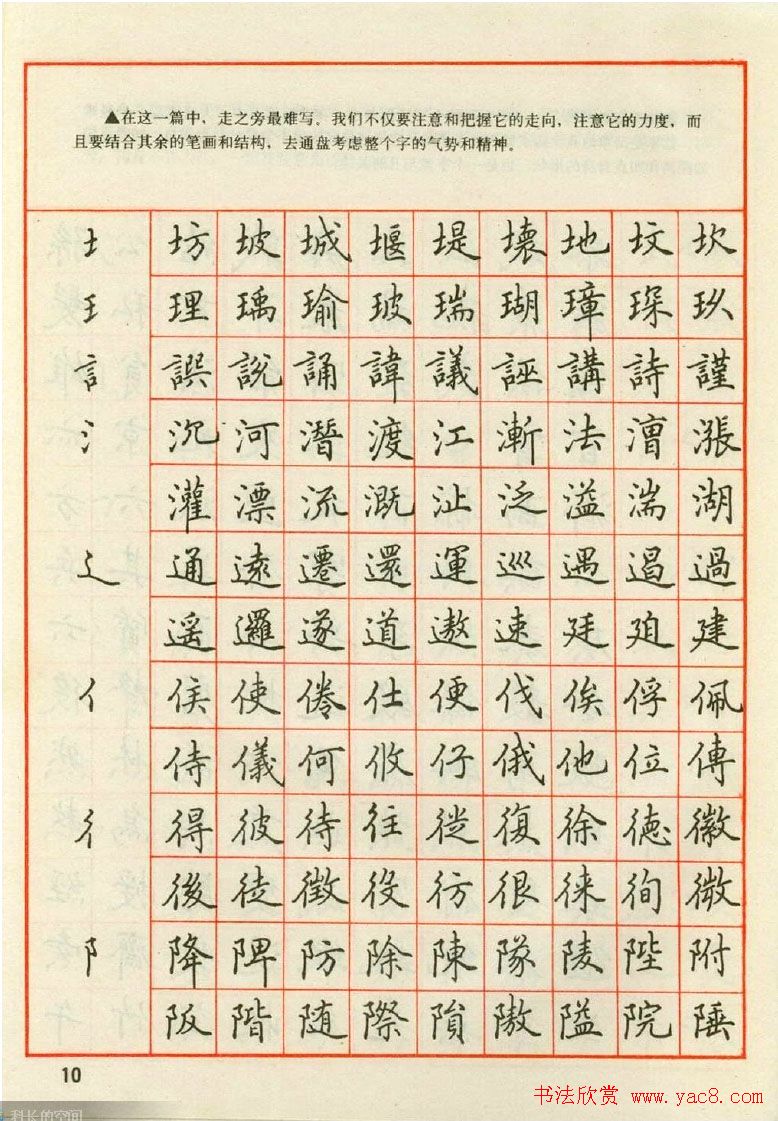 ▲在这一篇中，走之旁最难写。我们不仅要注意和把握它的走向，注意它的力度，而
且要结合其余的笔画和结构，去通盘考虑整个字的气势和精神。
土 坊 坡 城 堰 堤 壊 地 坟 坎
王 理 瑀 瑜 玻 瑞 瑚 璋 琛 玖
訁 誤 説 誦 諱 議 誣 講 詩 謹
氵 沉 河 潛 渡 江 漸 法 漕 漲
灌 漂 流 溉 沚 泛 溢 湍 湖
辶 通 遠 遷 還 運 巡 遇 遏 過
遥 邏 遂 道 遨 速 廷 廸 建
亻 侯 使 倦 仕 便 伐 俟 俘 佩
侍 儀 何 攸 仔 俄 他 位 傳
彳 得 彼 待 往 徙 復 徐 德 徽
後 徒 徵 役 彷 很 徠 徇 微
阝 降 陴 防 除 陳 隊 陵 陛 附
阪 階 随 際 隕 隞 隘 院 陲
10
书法欣赏 www.yac8.com
科长的空间